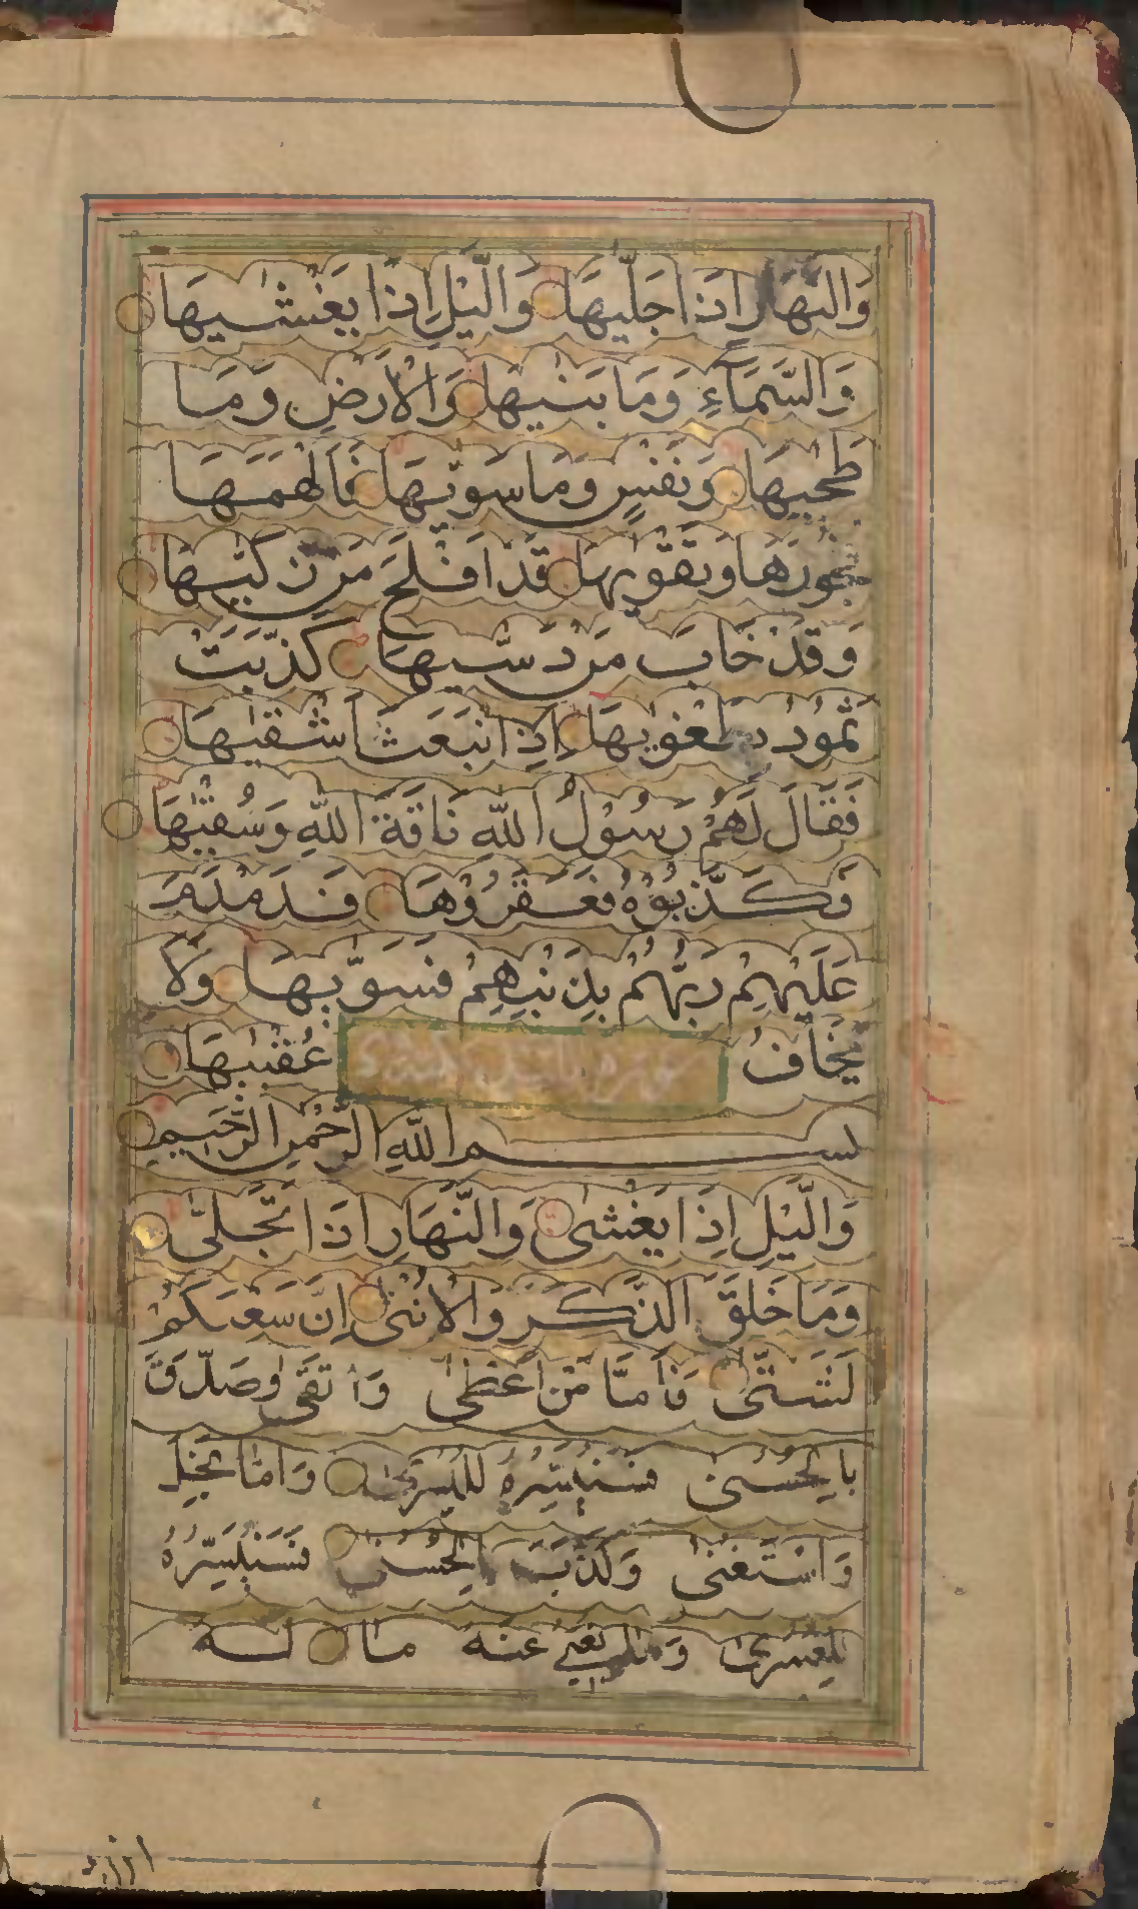 وَالنَّهَارِ اِذَا جَلّٰيهَا وَالَّيْلِ اِذَا يَغْشٰيهَا
وَالسَّمَآءِ وَمَا بَنٰيهَا وَالْاَرْضِ وَمَا
طَحٰيهَا وَنَفْسٍ وَمَا سَوّٰيهَا فَاَلْهَمَهَا
فُجُورَهَا وَتَقْوٰيهَا قَدْ اَفْلَحَ مَنْ زَكّٰيهَا
وَقَدْ خَابَ مَنْ دَسّٰيهَا كَذَّبَتْ
ثَمُودُ بِطَغْوٰيهَا اِذِ انْبَعَثَ اَشْقٰيهَا
فَقَالَ لَهُمْ رَسُولُ اللّٰهِ نَاقَةَ اللّٰهِ وَسُقْيٰهَا
فَكَذَّبُوْهُ فَعَقَرُوْهَا فَدَمْدَمَ
عَلَيْهِمْ رَبُّهُمْ بِذَنْبِهِمْ فَسَوّٰيهَا وَلَا
يَخَافُ عُقْبٰيهَا
بسم اللّٰهِ الرَّحْمٰنِ الرَّحِيمِ
وَالَّيْلِ اِذَا يَغْشٰى وَالنَّهَارِ اِذَا تَجَلّٰى
وَمَا خَلَقَ الذَّكَرَ وَالْاُنْثٰى اِنَّ سَعْيَكُمْ
لَشَتّٰى فَاَمَّا مَنْ اَعْطٰى وَاتَّقٰى وَصَدَّقَ
بِالْحُسْنٰى فَسَنُيَسِّرُهُ لِلْيُسْرٰى وَاَمَّا بَخِلَ
وَاسْتَغْنٰى وَكَذَّبَ بِالْحُسْنٰى فَسَنُيَسِّرُهُ
لِلْعُسْرٰى عنه مال له